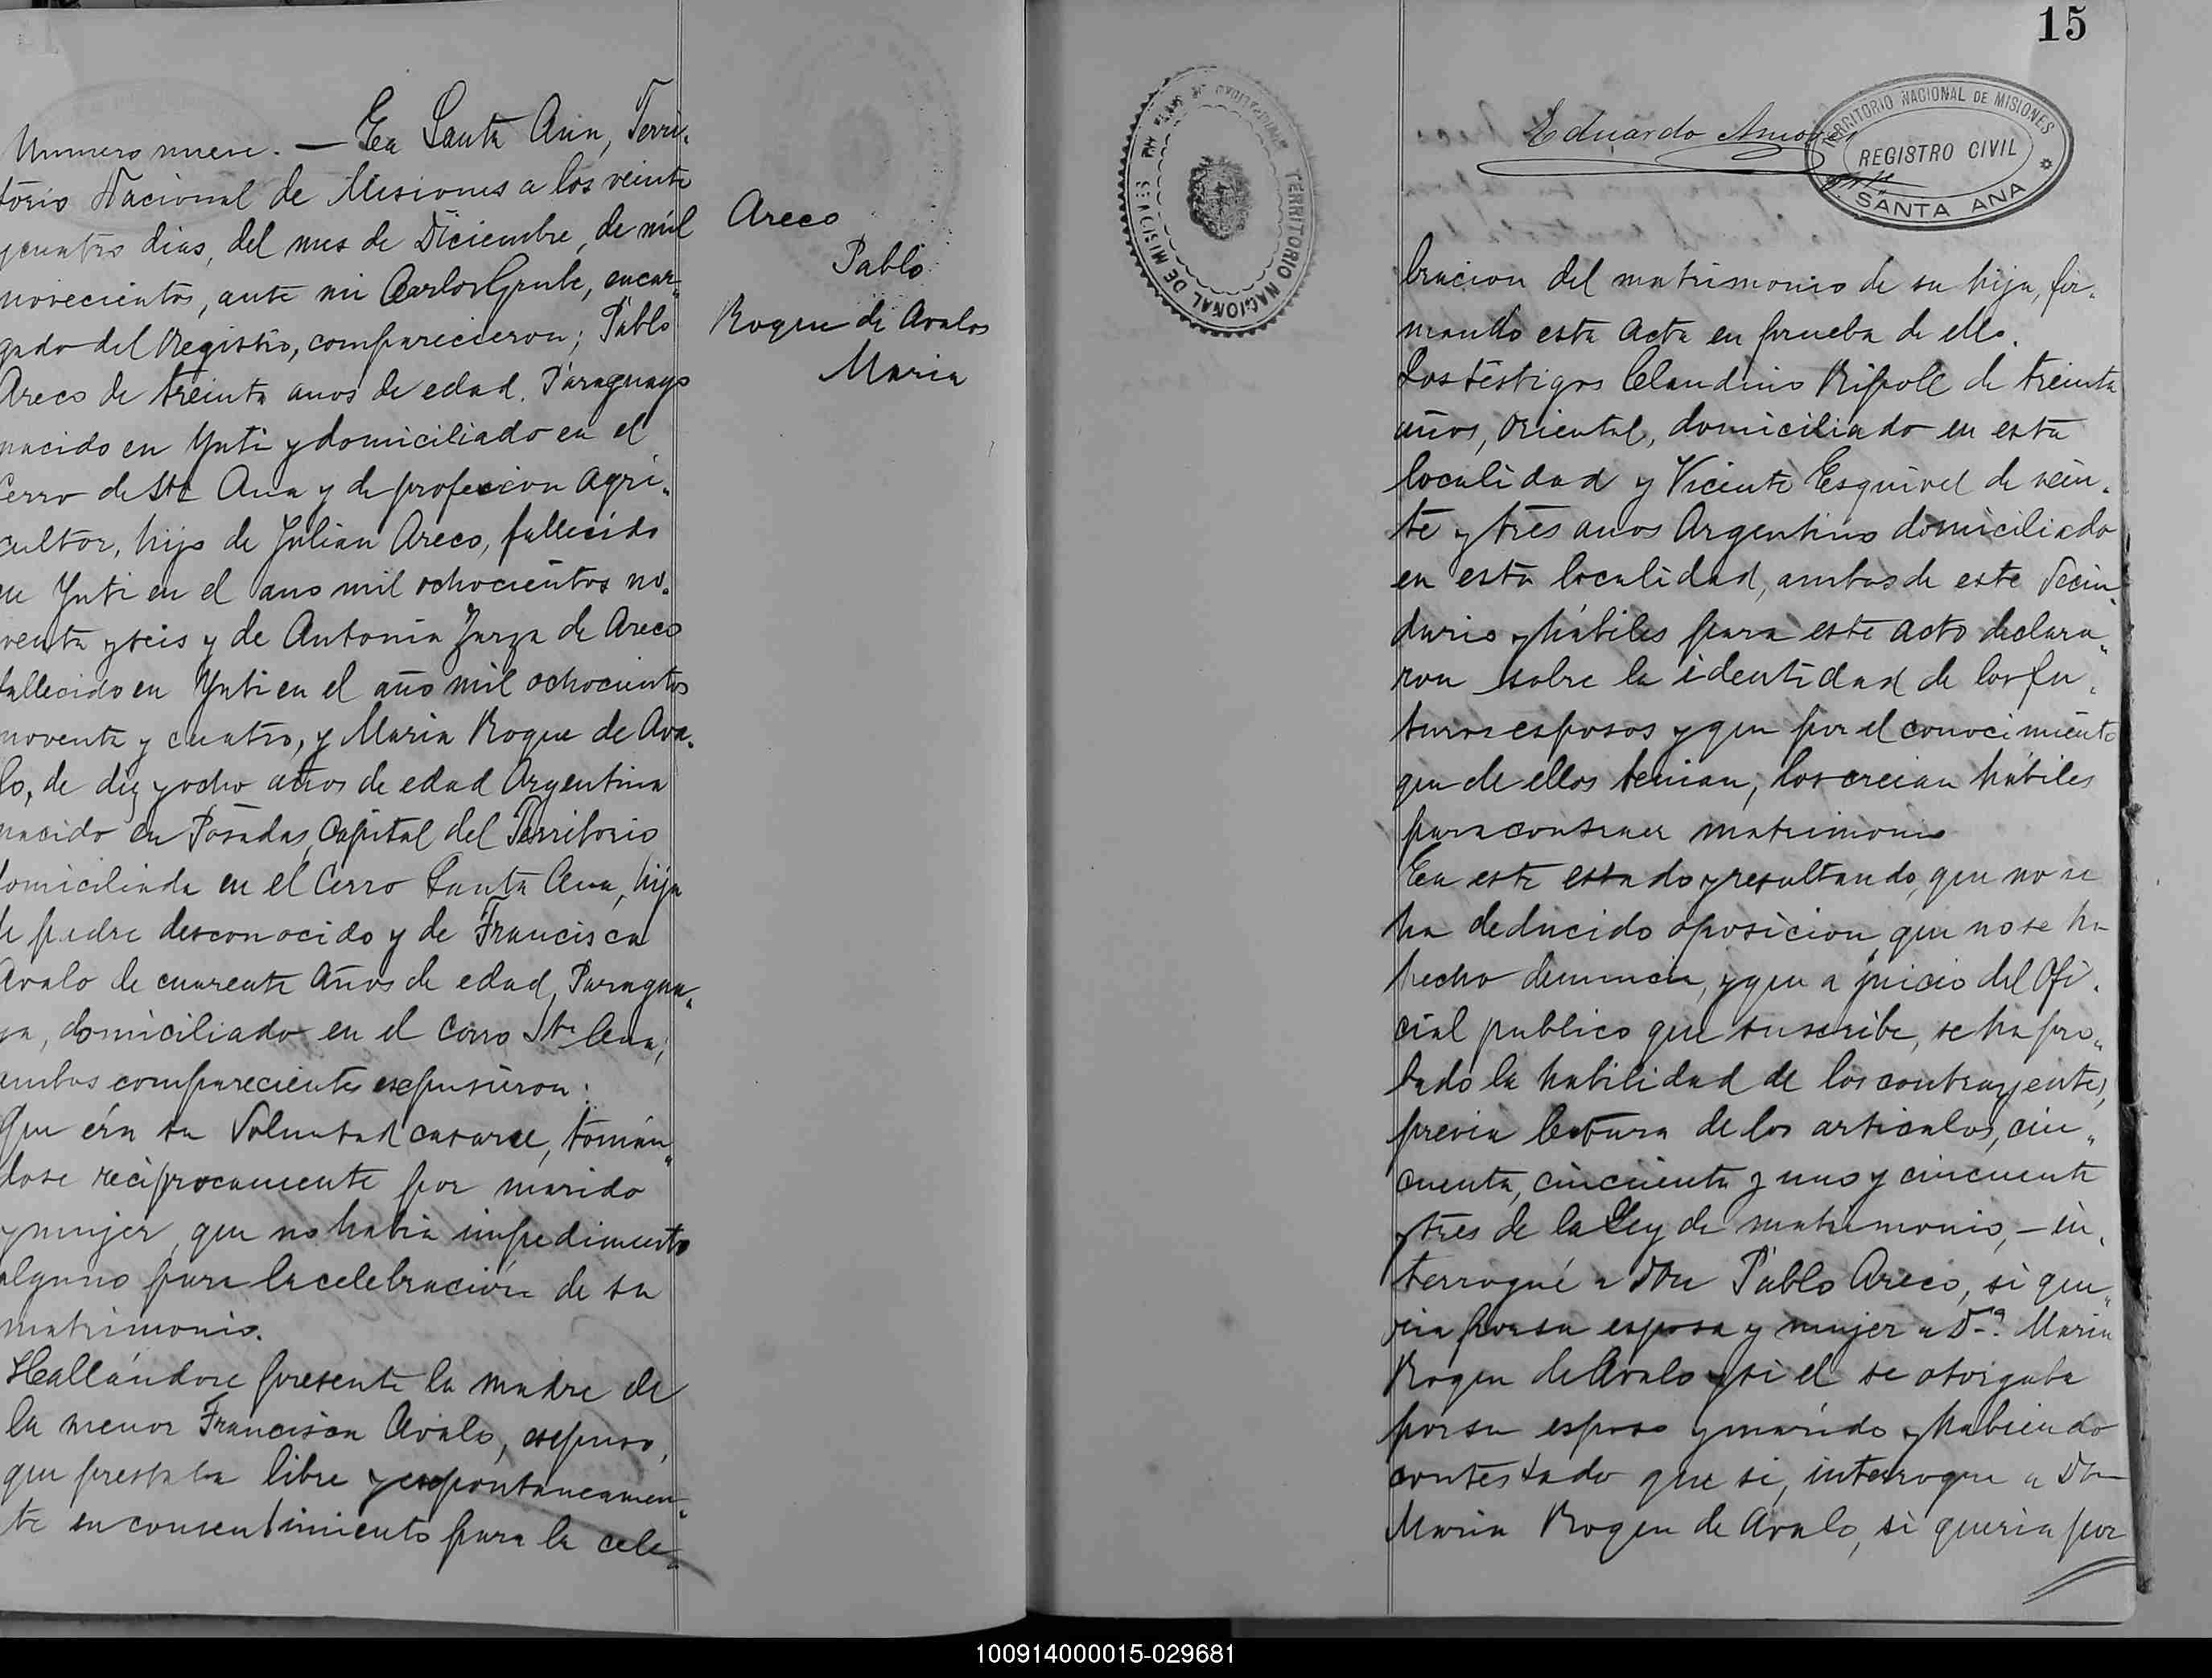 Numero nueve. — En Santa Ana, Terri-
torio Nacional de Misiones a los veinte
y cuatro dias, del mes de Diciembre, de mil
novecientos, ante mi Carlos Grube, encar-
gado del Registro, comparecieron; Pablo
Areco de treinta anos de edad. Paraguayo
nacido en Yuti y domiciliado en el
Cerro de Sta Ana y de profesion agri-
cultor, hijo de Julian Areco, fallecido
en Yuti en el ano mil ochocientos no-
venta y seis y de Antonia Zarza de Areco
fallecido en Yuti en el año mil ochocientos
noventa y cuatro, y Maria Roque de Ava-
lo, de diez y ocho años de edad Argentina
nacido en Posadas, Capital del Territorio
domiciliada en el Cerro Santa Ana, hija
de padre desconocido y de Francisca
Avalo de cuarente años de edad, Paragua-
ya, domiciliado en el Cerro Sta Ana,
ambos comparecientes expusieron:
Que éra su Voluntad casarse, tomán-
dose reciprocamente por marido
y mujer, que no habia impedimento
alguno para la celebración de su
matrimonio.
Hallándose presente la madre de
la menor Francisca Avalo, expuso,
que prestaba libre y expontaneamen-
te su consentimiento para la cele-
Areco
Pablo
Roque de Avalos
Maria
TERRITORIO NACIONAL DE MISIONES
15
Eduardo Amores
TERRITORIO NACIONAL DE MISIONES
REGISTRO CIVIL
SANTA ANA
bracion del matrimonio de su hija, fir-
mando esta acta en prueba de ello.
Los téstigos Claudino Ripoll de treinta
años, Oriental, domiciliado en esta
localidad y Vicente Esquivel de vein-
te y tres anos Argentino domiciliado
en esta localidad, ambos de este Vecin-
dario y hábiles para este acto declara-
ron sobre la identidad de los fu-
turos esposos y que por el conocimiento
que de ellos tenian, los creian hábiles
para contraer matrimonio
En este estado y resultando, que no se
ha deducido oposicion que no se ha
hecho denuncia, y que a juicio del Ofi-
cial publico que suscribe, se ha pro-
bado la habilidad de los contrayentes,
previa lectura de los articulos, cin-
cuenta, cincuenta y uno y cincuente
y tres de la Ley de matrimonio, – in-
terrogué a Don Pablo Areco, si que-
ria por su esposa y mujer a Da. Maria
Roque de Avalo y si el se otorgaba
por su esposo y marido y habiendo
contestado que si, interrogue a Da
Maria Roque de Avalo, si queria por
100914000015-029681